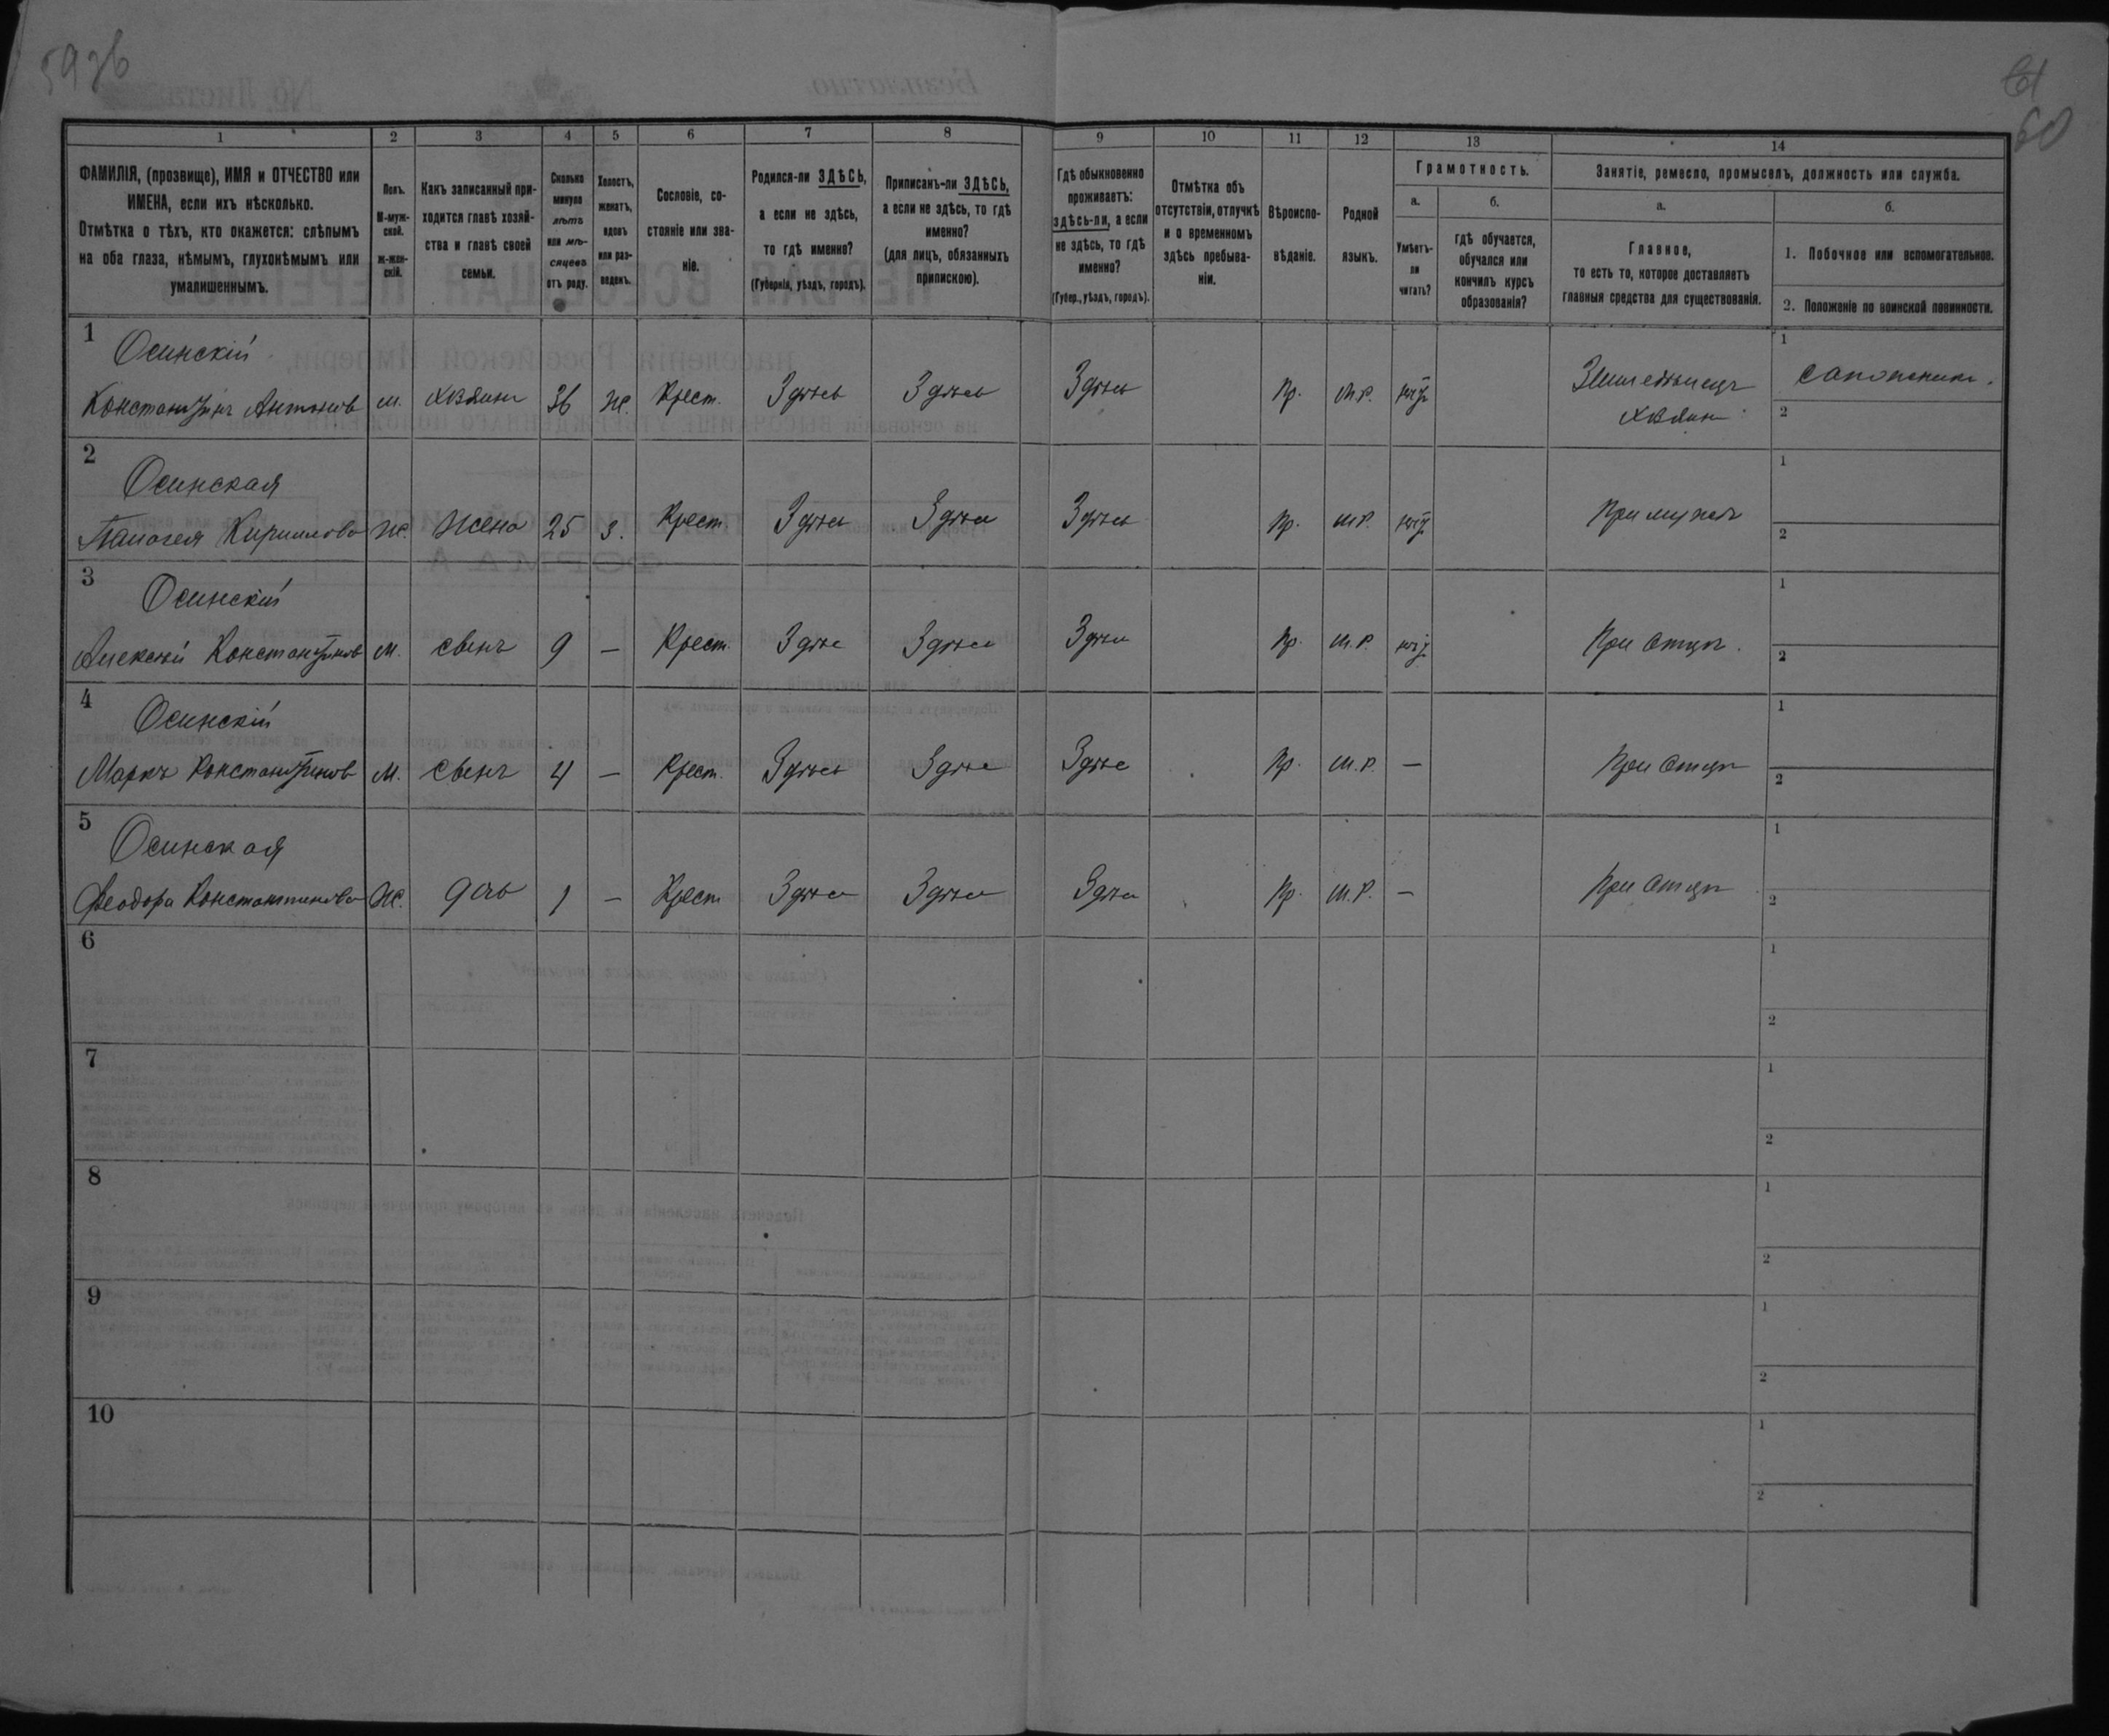 593б
61
60
1
2
3
4
5
6
7
8
9
10
11
12
13
14
ФАМИЛІЯ, (прозвище), ИМЯ и ОТЧЕСТВО или
ИМЕНА, если ихъ нѣсколько.
Отмѣтка о тѣхъ, кто окажется: слѣпымъ
на оба глаза, нѣмымъ, глухонѣмымъ или
умалишеннымъ.
Полъ.
М-муж-
ской.
ж-жен-
скій.
Какъ записанный при-
ходится главѣ хозяй-
ства и главѣ своей
семьи.
Сколько
минуло
лѣтъ
или мѣ-
сяцевъ
отъ роду.
Холостъ,
женатъ,
вдовъ
или раз-
веденъ.
Сословіе, со-
стояніе или зва-
ніе.
Родился-ли ЗДѢСЬ,
а если не здѣсь,
то гдѣ именно?
(Губернія, уѣздъ, городъ).
Приписанъ-ли ЗДѢСЬ,
а если не здѣсь, то гдѣ
именно?
(для лицъ, обязанныхъ
припискою).
Гдѣ обыкновенно
проживаетъ:
здѣсь-ли, а если
не здѣсь, то гдѣ
именно?
(Губер., уѣздъ, городъ).
Отмѣтка объ
отсутствіи, отлучкѣ
и о временномъ
здѣсь пребыва-
ніи.
Вѣроиспо-
вѣданіе.
Родной
языкъ.
Грамотность.
а.
Умѣетъ-
ли
читать?
б.
гдѣ обучается,
обучался или
кончилъ курсъ
образованія?
Занятіе, ремесло, промыселъ, должность или служба.
а.
Главное,
то есть то, которое доставляетъ
главныя средства для существованія.
б.
1. Побочное или вспомогательное.
2. Положеніе по воинской повинности.
1
Осинскій
Константинъ Антоновъ м. хозяинъ 36 ж. Крест. Здѣсь Здѣсь Здѣсь Пр. м.р. нѣт
Землевладѣлецъ
хозяинъ
1 сапожникъ.
2
2
Осинская
Пелагея Кириллова ж. Жена 25 з. Крест. Здѣсь Здѣсь Здѣсь Пр. м.р. нѣт При мужѣ
1
2
3
Осинскій
Алексѣй Константинов м. сынъ 9 — Крест. Здѣс Здѣсь Здѣсь Пр. м.р. нѣт При отцѣ.
1
2
4
Осинскій
Маркъ Константинов м. сынъ 4 — Крест. Здѣсь Здѣс Здѣс Пр. м.р. — При отцѣ
1
2
5
Осинская
Феодора Константинова ж. дочь 1 — Крест Здѣсь Здѣсь Здѣсь Пр. м.р. — При отцѣ
1
2
6
1
2
7
1
2
8
1
2
9
1
2
10
1
2